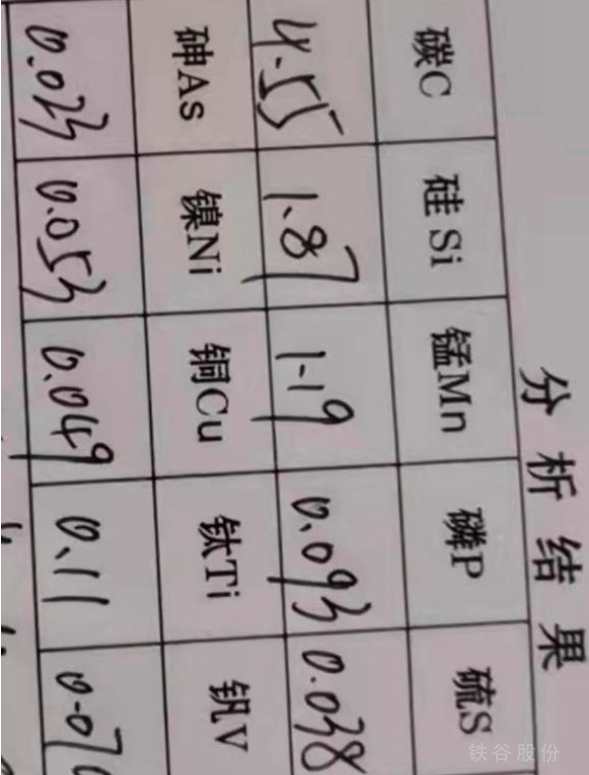 分析结果
碳C 硅Si 锰Mn 磷P 硫S
4.55 1.87 1.19 0.093 0.038
砷As 镍Ni 铜Cu 钛Ti 钒V
0.023 0.053 0.049 0.11
铁谷股份